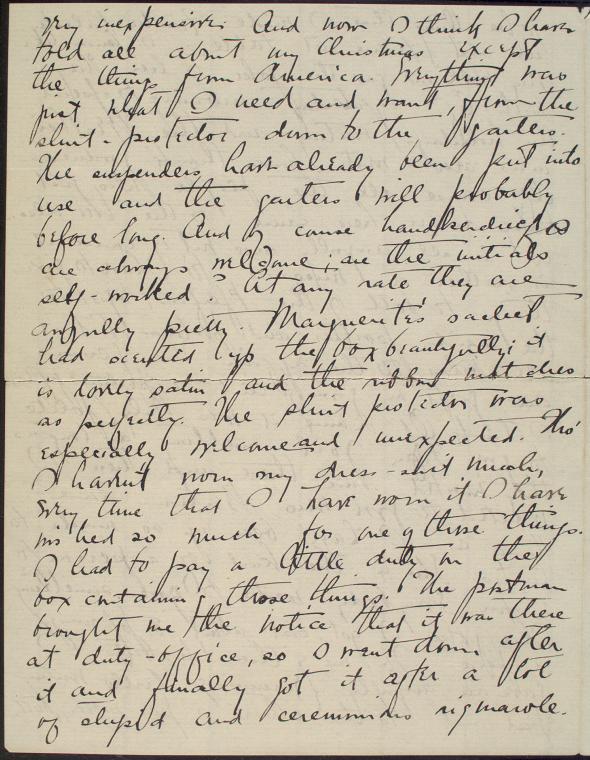 very inexpensive. And now I think I have
told all about my Christmas except
the things from America. Everything was
just what I need and want, from the
shirt-protector down to the garters.
The suspenders have already been put into
use and the garters will probably
before long. And of course handkerchiefs
are always welcome; are the initials
self-worked? At any rate they are
awfully pretty. Marguerite's sachet
had scented up the box beautifully; it
is lovely satin and the ribbon matches
so perfectly. The shirt protector was
especially welcome and unexpected. Tho'
I haven't worn my dress-suit much,
every time that I have worn it I have
wished so much for one of those things.
I had to pay a little duty on the
box containing those things. The postman
brought me the notice that it was there
at duty-office, so I went down after
it and finally got it after a lot
of stupid and ceremonious rigmarole.